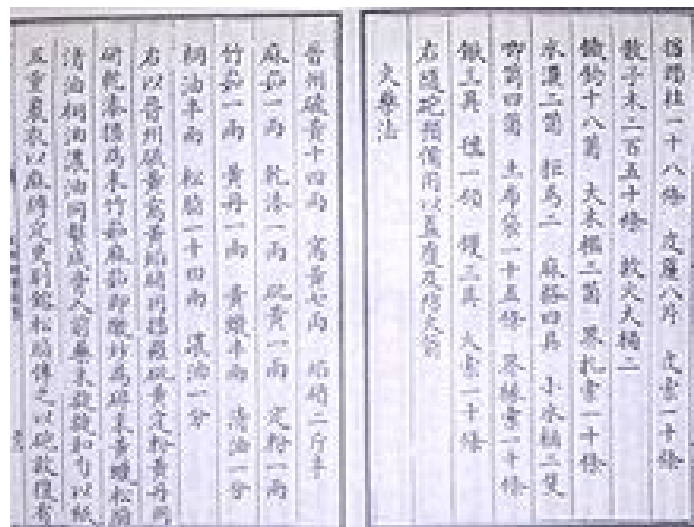 搭頭柱一十八條 皮簾八片 皮索一十條
散子木二百五十條 救火大桶二
鐵鈎十八箇 大木檑二箇 界扎索一十條
水濃二箇 拒馬二 麻搭四具 小水桶二隻
唧筒四箇 土布袋一十五條 界椽索一十條
鍬三具 一領 钁三具 火索一十條
右隨砲預備用以蓋覆及防火箭
火藥法
晉州硫黃十四兩 窩黃七兩 焰硝二斤半
麻茹一兩 乾漆一兩 砒黃一兩 定粉一兩
竹茹一兩 黃丹一兩 黃蠟半兩 清油一分
桐油半兩 松脂一十四兩 濃油一分
右以晉州硫黃窩黃焰硝同搗羅砒黃定粉黃丹同
研乾漆搗為末竹茹麻茹即微炒為碎末黃蠟松脂
清油桐油濃油同熬成膏入前藥末旋旋和勻以紙
五重裹衣以麻縛定更別鎔松脂傅之以砲放復有